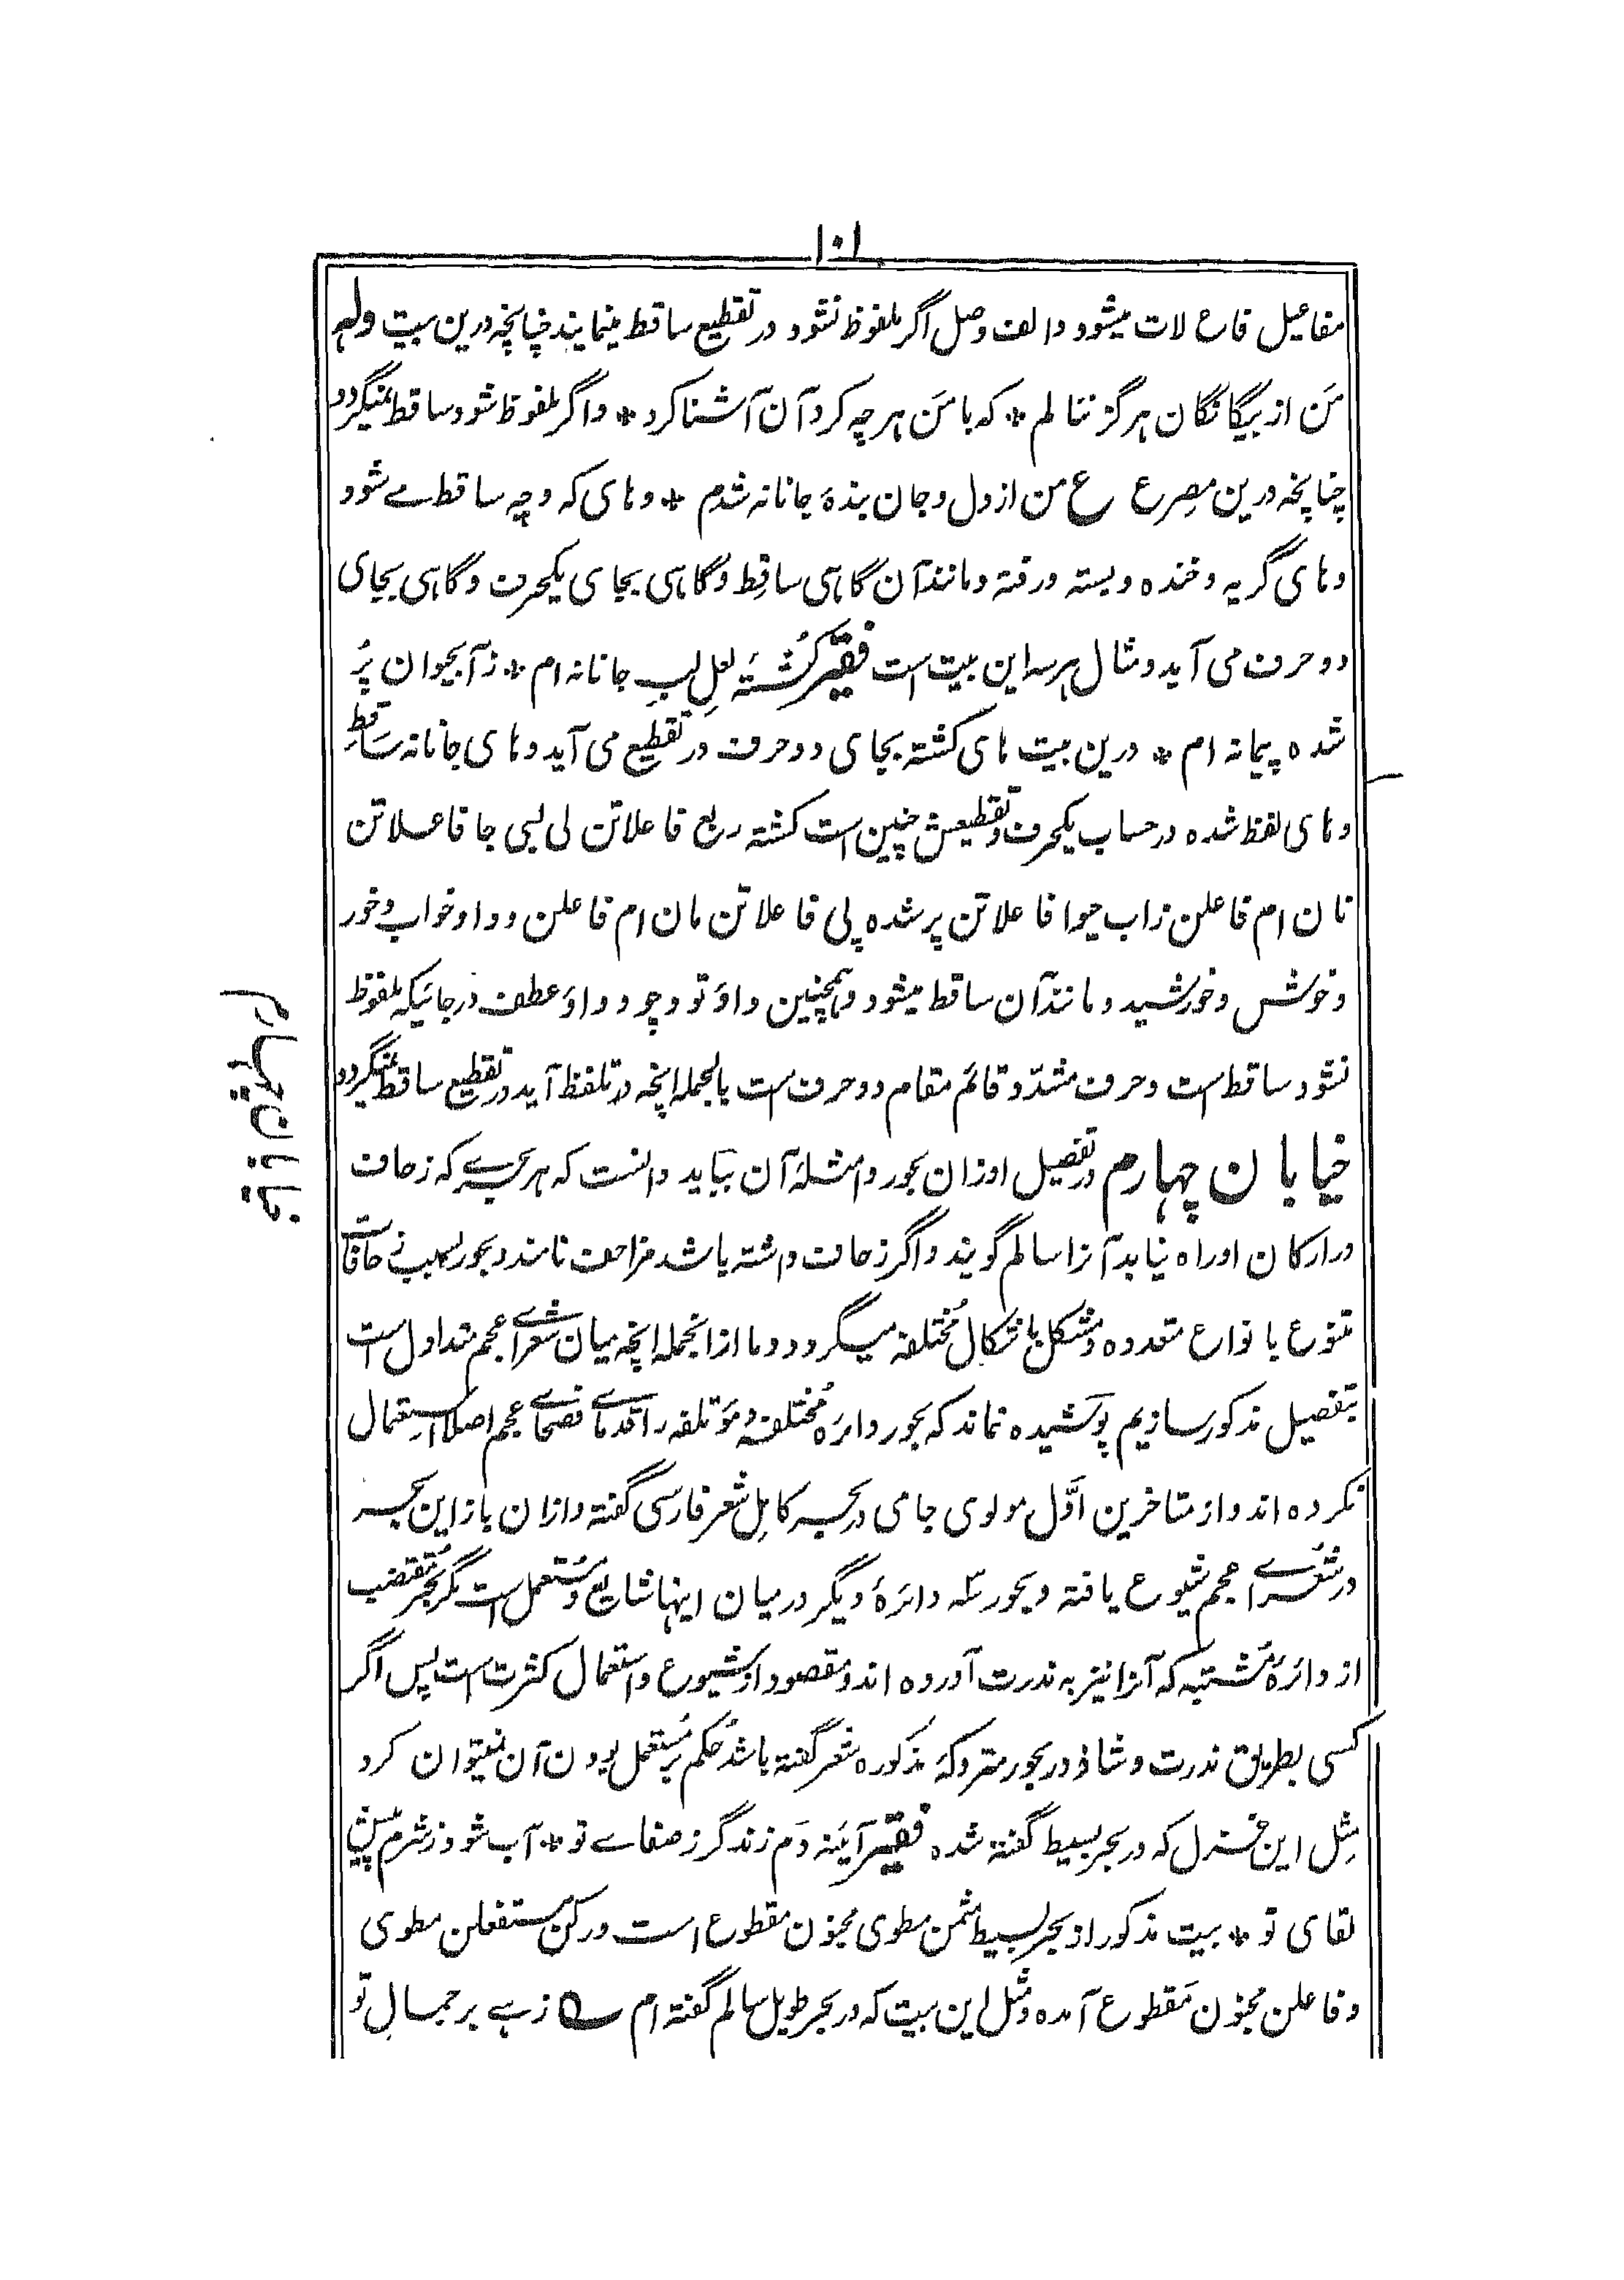 ۱۰۱
مفاعیل فاع لات میشود و الف وصل اگر ملفوظ نشود در تقطیع ساقط مینمایند چنانچه درین بیت ولہ
مَن از بیگانگان ہرگز ننالم * کہ با مَن ہرچہ کرد آن آشنا کرد * و اگر ملفوظ شود ساقط نمیگردد
چنانچہ درین مصِرع ع من از دل و جان بندۂ جانانہ شدم * و ہای کہ و چہ ساقط مے شود
و ہای گریہ و خندہ و بستہ و رفتہ و مانند آن گاہی ساقِط و گاہی بجای یکحرف و گاہی بجای
دو حرف می آید و مثال ہر سہ این بیت است فقیر کُشتۂ لعلِ لبِ جانانہ ام * ز آبحیوان پُر
شدہ پیمانہ ام * درین بیت ہای کشتہ بجای دو حرف در تقطیع می آید و ہای جانانہ ساقطِ
و ہای لفظ شدہ در حساب یکحرف و تقطیعش چنین است کشتہ ر لع فاعلاتن لی لبی جا فاعلاتن
نان ام فاعلن زاب حیوا فاعلاتن پر شدہ پی فاعلاتن مان ام فاعلن و واو خواب و خور
و خوش و خورشید و مانند آن ساقط میشود و ہمچنین واؤ تو و چو و واؤ عطف در جائیکہ ملفوظ
نشود ساقط است و حرف مشدّد قائم مقام دو حرف ست بالجملہ انچہ در تلفظ آید در تقطیع ساقط نمیگردد
خیابان چہارم در تفصیل اوزان بحور و امثلۂ آن بباید دانست کہ ہر بحرے کہ زحاف
در ارکان او راہ نیابد آنرا سالم گویند و اگر زحاف داشتہ باشد مزاحف نامند و بحور بسبب زحافات
متنوع بانواع متعددہ و متشکل باشکال مُختلفہ میگردد و ما ازانجملہ انچہ میان شعراے عجم متداول است
بتفصیل مذکور سازیم پوشیدہ نماند کہ بحور دائرہ مُختلفہ و مؤتلفہ را قدماے فصحاے عجم اصلا استعمال
نکردہ اند و از متاخرین اوّل مولوی جامی در بحر کامِل شعر فارسی گفتہ و ازان باز این بحر
در شعراے عجم شیوع یافتہ و بحور سہ دائرۂ دیگر درمیان اینہا شایع و مُستعمل است مگر بحر مُقتضب
از دائرۂ مشتبہ کہ آنرا نیز بہ ندرت آوردہ اند و مقصود از شیوع و استعمال کثرت است پس اگر
کسی بطریق ندرت و شاذ در بحور متروکۂ مذکورہ شعر گفتہ باشد حُکم بر مُستعمل بودن آن نمیتوان کرد
مِثل این غزل کہ در بحر بسیط گفتہ شدہ فقیر آینہ دَم زند گر ز صفاے تو * آب شود ز شرم پیش
لقای تو * بیت مذکور از بحر بسیط مثمن مطوی مخبون مقطوع است و رکن مستفعلن مطوی
و فاعلن مخبون مَقطوع آمدہ و مثل این بیت کہ در بحر طویل سالم گفتہ ام زہے بر جمالِ تو
خیابان چہارم